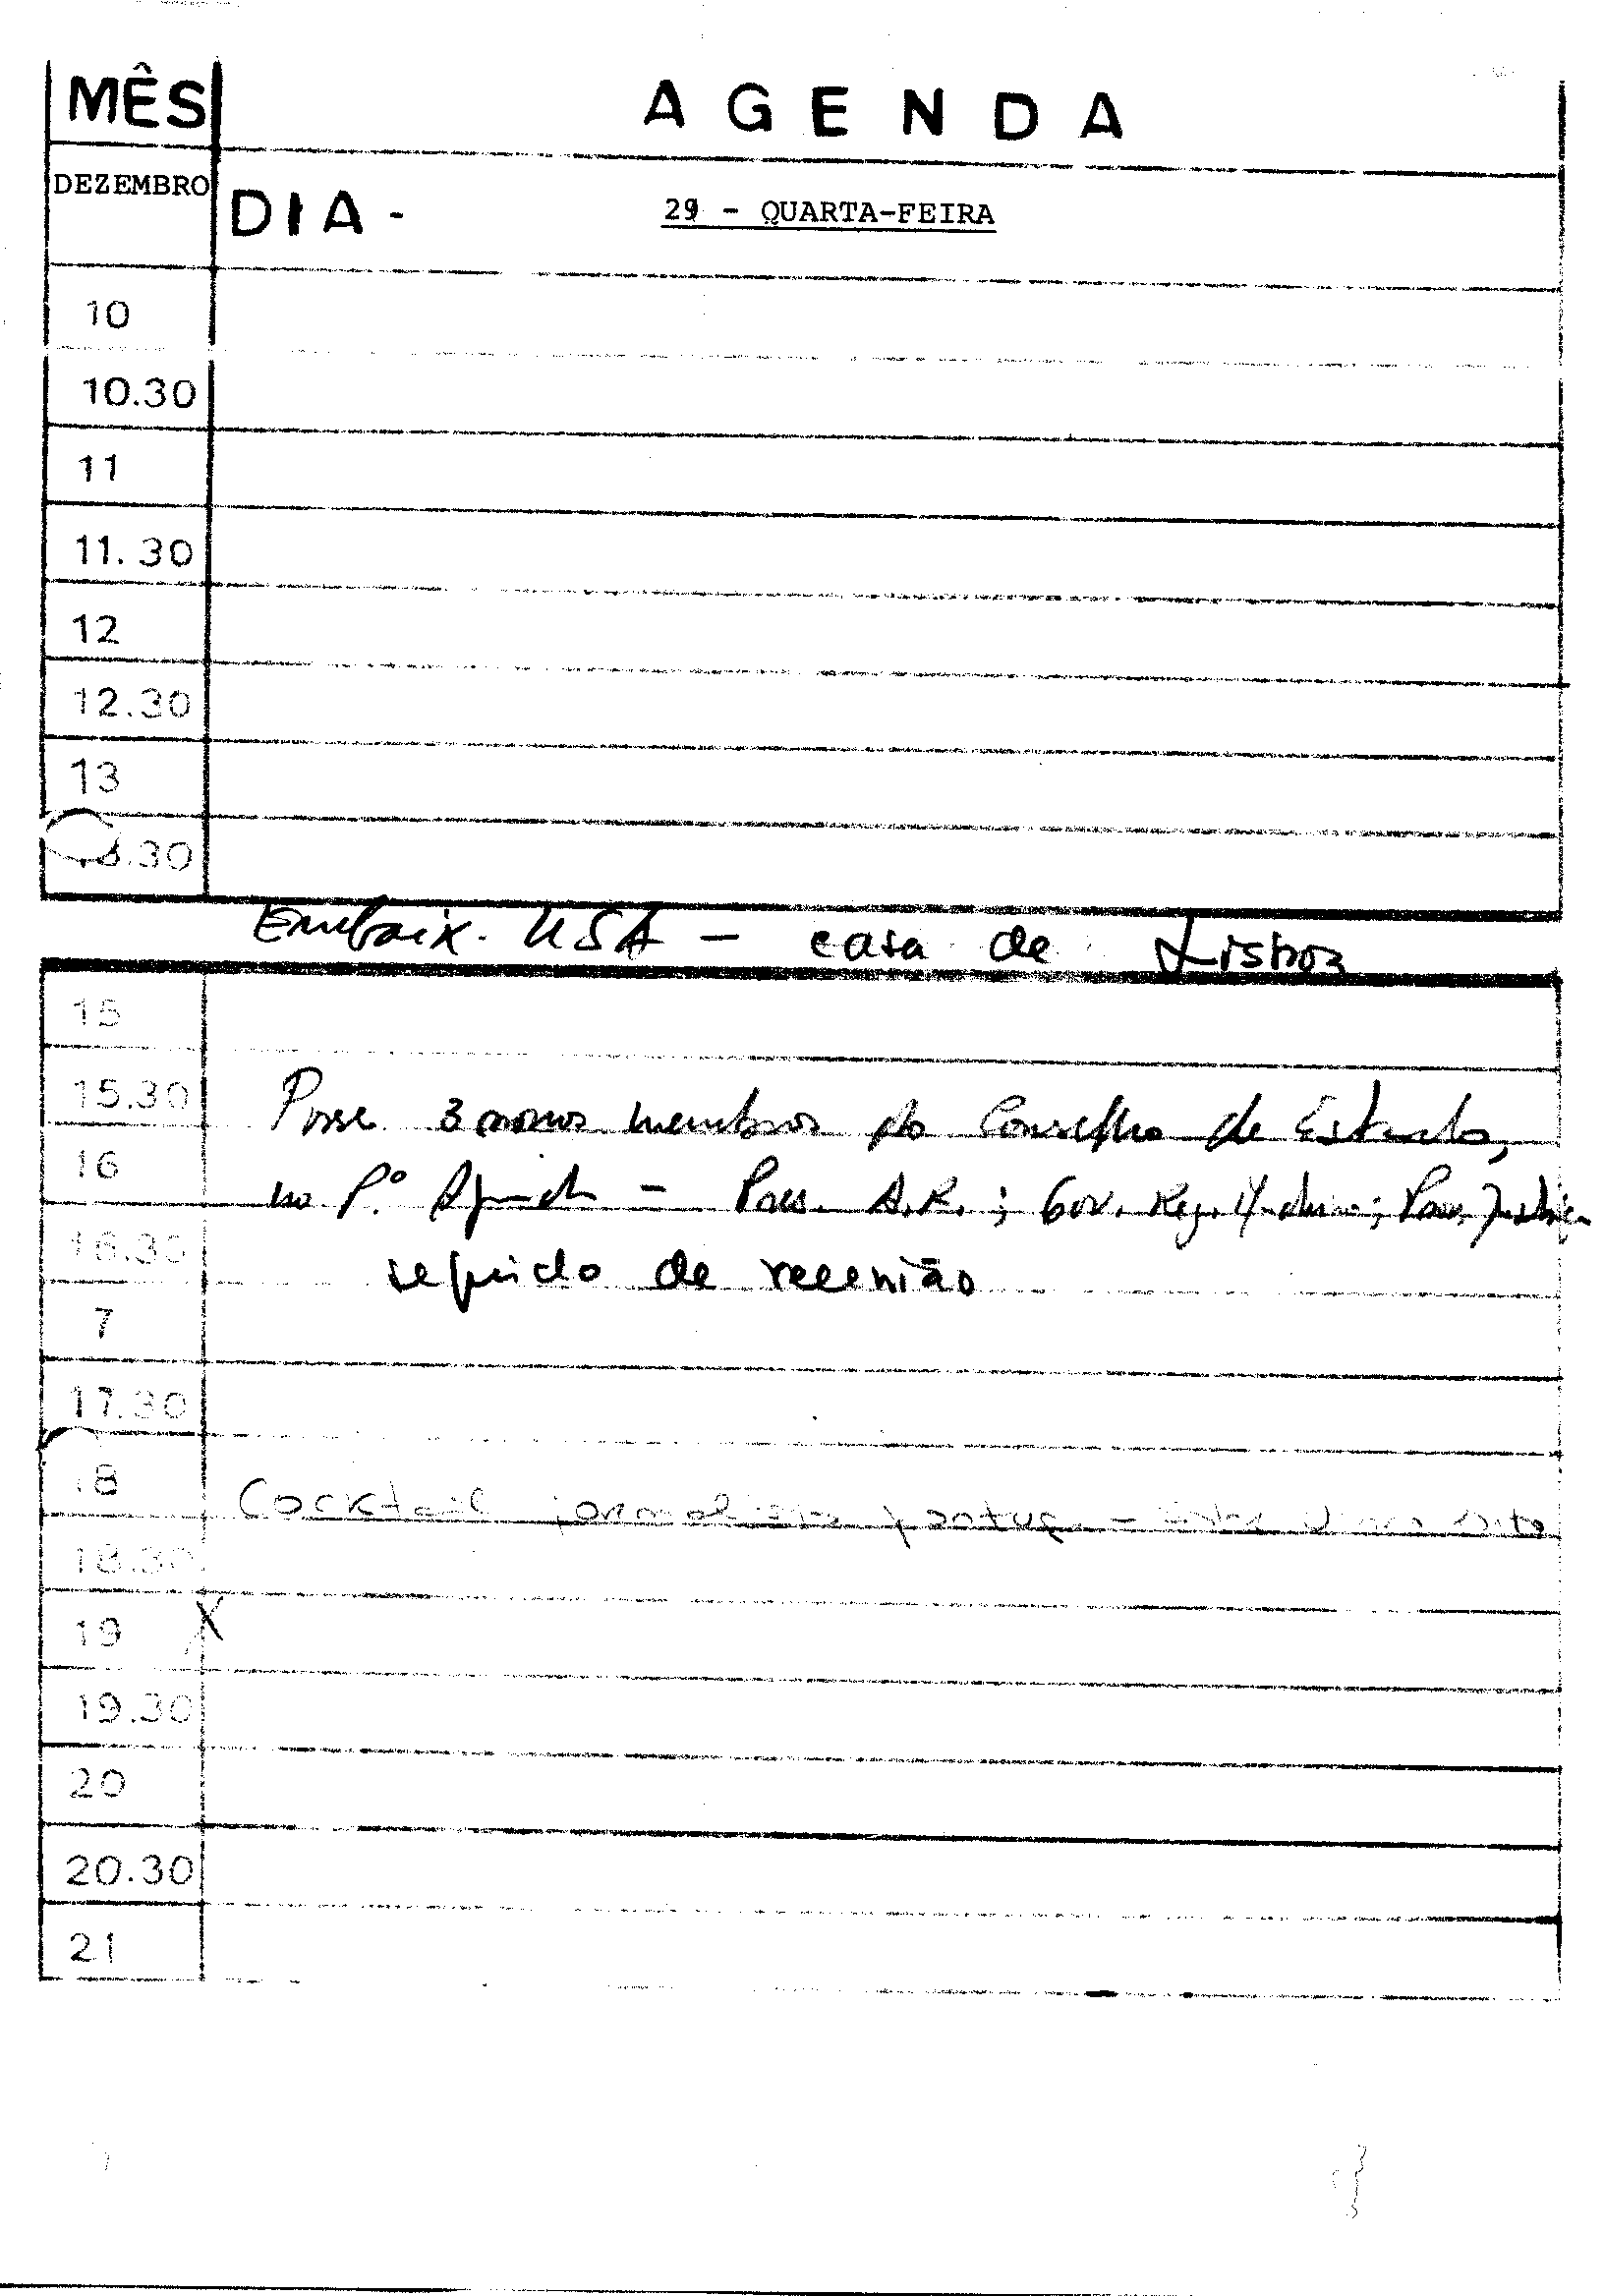 MÊS AGENDA
DEZEMBRO
DIA - 29 - QUARTA-FEIRA
10
10.30
11
11.30
12
12.30
13
.30
Embaix. USA - casa de Lisboa
15
15.30 Posse 3 novos membros do Conselho de Estado,
16 no Pº Ajuda - Pres. A.R.; Gov. Reg. Madeira; Prov. Justiça
16.30 seguido de reunião
7
17.30
18 Cocktail
18.30
19 X
19.30
20
20.30
21